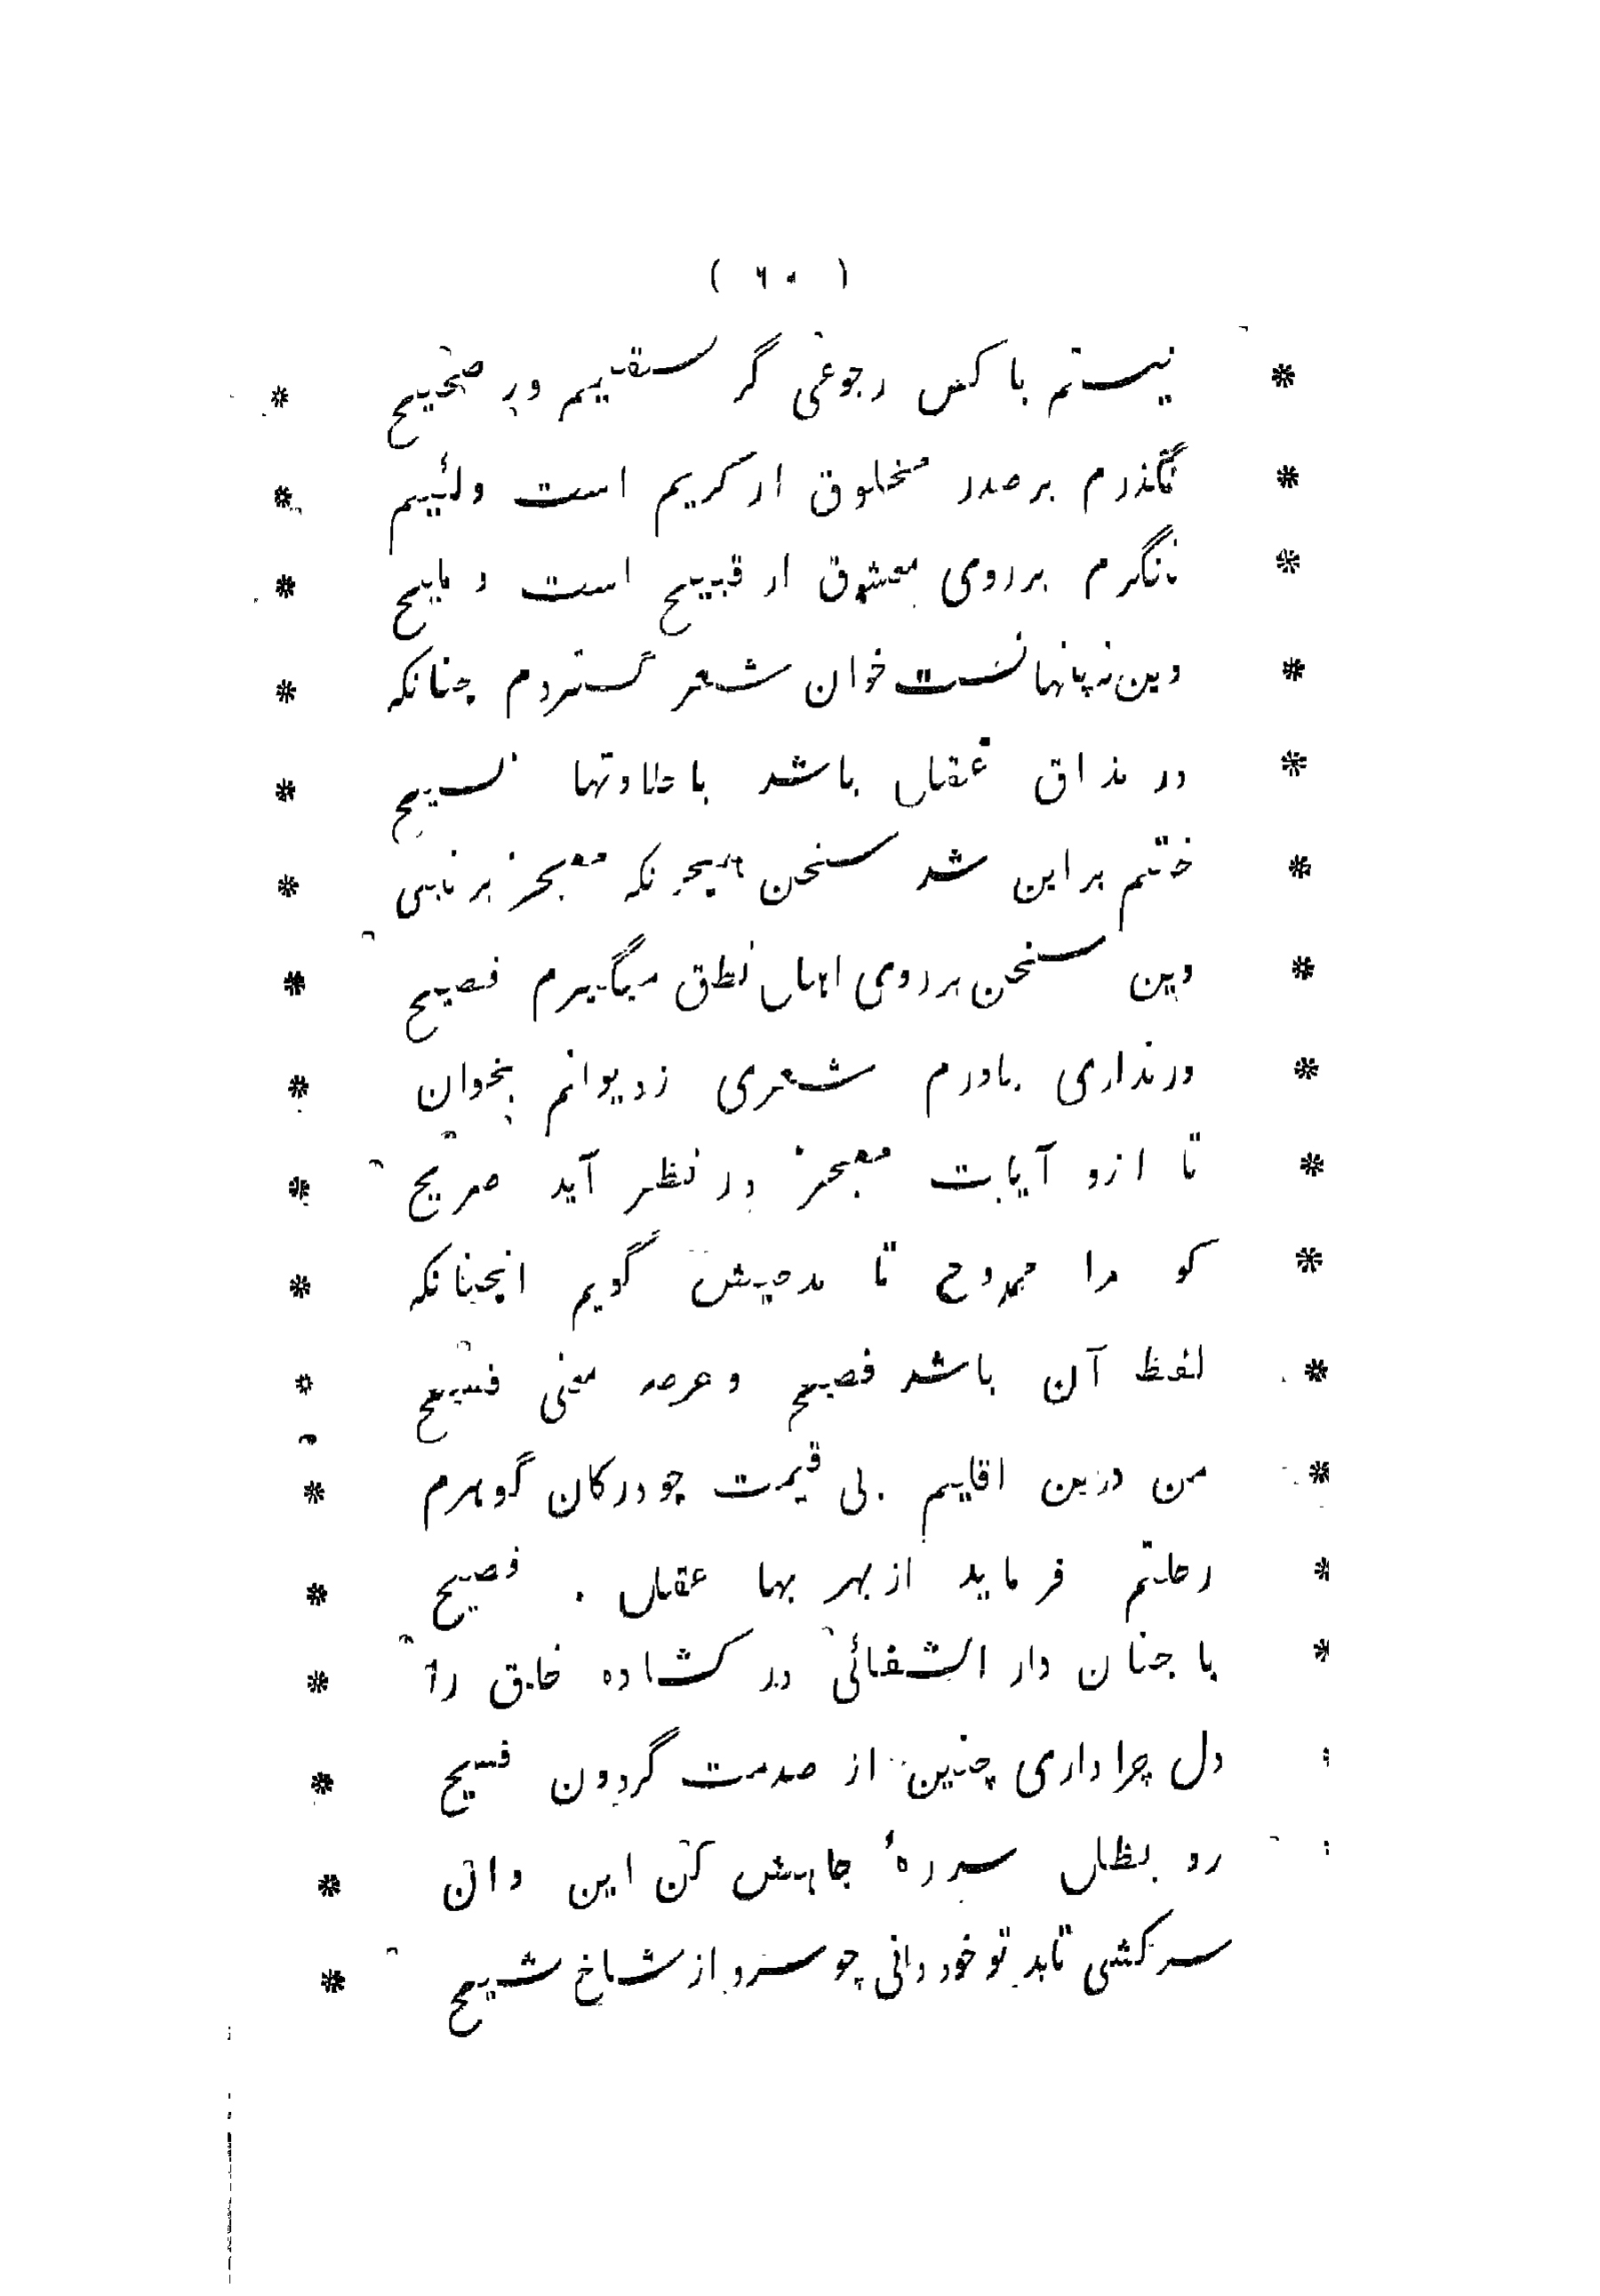 ( ٦٠ )
* نیستم با کس رجوعی گر سقیم ور صحیح *
* نگذرم بر صدر مخلوق ار کریم است ولئیم *
* ننگرم بر روی معشوق ار قبیح است و ملیح *
* وین نه پنهانست خوان شعر گستردم چنانکه *
* در مذاق عقل باشد با حلاوتها *
* ختم بر این شد سخن همچونکه معجز بر نبی *
* وین سخن بر روی اهل نطق میگیرم فصیح *
* ور نداری باورم شعری ز دیوانم بخوان *
* تا ازو آیات معجز در نظر آید صریح *
* کو مرا ممدوح تا مدحیش گویم انچنانکه *
* لفظ آن باشد فصیح و عرصه معنی فسیح *
* من درین اقلیم بی قیمت چو در کان گوهرم *
* رحلتم فرماید از بهر بها عقل فصیح *
* با چنان دار الشفائی در کشاده خلق را *
دل چرا داری چنین از صدمت گردون *
رو بظل سدرهٔ جاهش کن این وان *
سرکشی تابد تو خود دانی چو سرو از شاخ شیح *